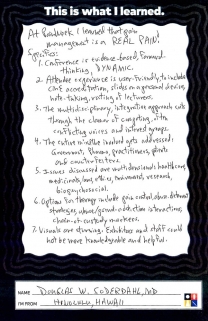 This is what I learned.
At PAINWeek, I learned that pain
management is a REAL PAIN!
Specifics:
1. Conference is evidence-based, forward-
thinking, DYNAMIC.
2. Attendee experience is user-friendly, to include
CME accreditation, slides on a personal device,
note-taking, rating of lecturers.
3. The multidisciplinary, integrative approach cuts
through the clamor of competing, often
conflicting voices and interest groups.
4. The entire middle
Government, Pharma, practitioners, patients
and
5. Issues discussed are multidimensional: healthcare,
medicinals, legal, ethics, reimbursement, research,
biopsychosocial.
6. Options for therapy include
strategies,
chain-of-custody markers.
7. Visuals are stunning. Exhibitors and staff could
not be more knowledgeable and helpful.
NAME DOUGLAS W. SODERDAHL, MD
I'M FROM HONOLULU, HAWAII